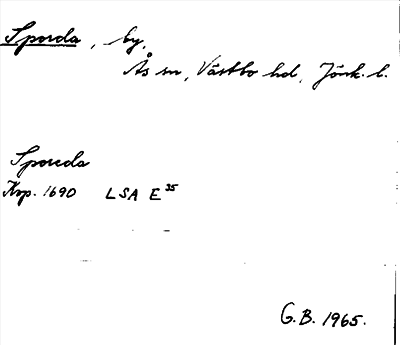 Sporda, by,
Ås sn, Västbo hd, Jönk. l.
Sporeda
Kop. 1690 LSA E 35
G.B. 1965.